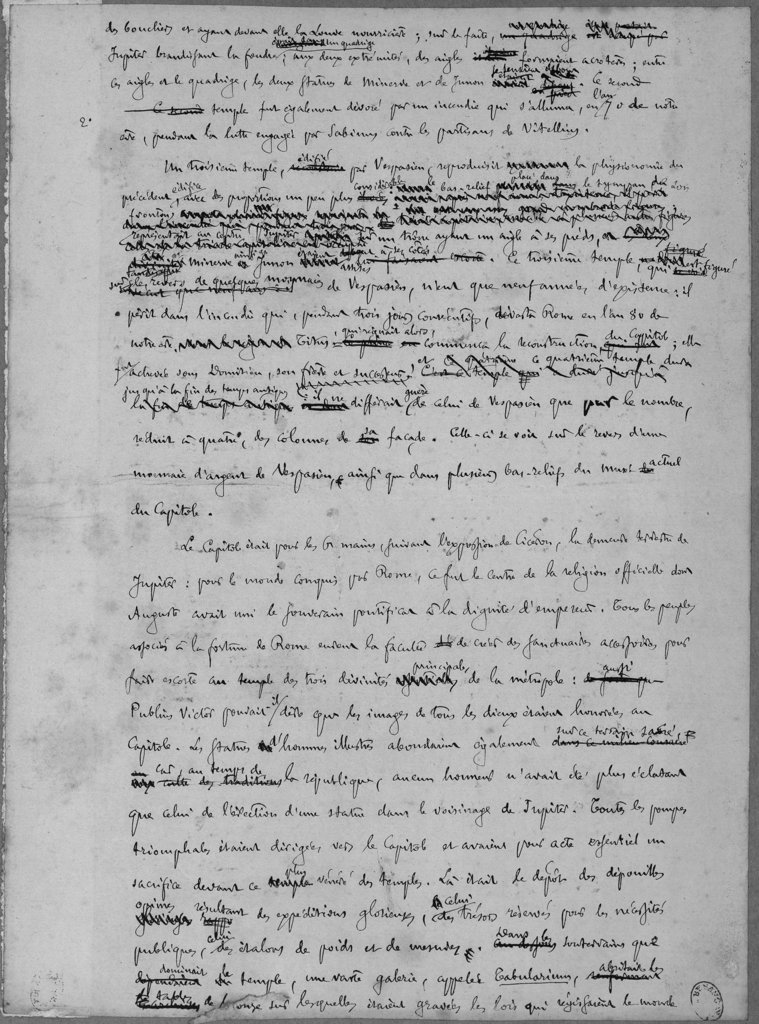 des boucliers et ayant devant elle la Louve nourricière ; sur le faîte, un quadrige
Jupiter brandissant la foudre ; aux deux extrémités, des aigles formaient acrotères ; entre
les aigles et le quadrige, les deux statues de Minerve et de Junon Ce second
2° Ce second temple fut également dévoré par un incendie qui s'alluma, en l'an 70 de notre
ère, pendant la lutte engagée par Sabinus contre les partisans de Vitellius.
Un troisième temple, édifié par Vespasien, reproduisit la physionomie du
précédent édifice, avec des proportions un peu plus considérables bas-relief placé dans le tympan de son
fronton
représentait au centre Jupiter sur un trône ayant un aigle à ses pieds,
Minerve et Junon assises à ses côtés. Ce troisième temple, qui figuré
sur le revers de quelques monnaies de Vespasien, n'eut que neuf années d'existence : il
périt dans l'incendie qui, pendant trois jours consécutifs, dévasta Rome en l'an 80 de
notre ère. Titus, qui régnait alors, commença la reconstruction du Capitole ; elle
fut achevée sous Domitien, son frère et successeur, et ce quatrième temple dura
jusqu'à la fin des temps antiques ; il ne
différait guère de celui de Vespasien que par le nombre,
réduit à quatre, des colonnes de sa façade. Celle-ci se voit sur le revers d'une
monnaie d'argent de Vespasien, ainsi que dans plusieurs bas-reliefs du musée actuel
du Capitole.
Le Capitole était pour les Romains, suivant l'expression de Cicéron, la demeure terrestre de
Jupiter : pour le monde conquis par Rome, ce fut le centre de la religion officielle dont
Auguste avait uni le souverain pontificat à la dignité d'empereur. Tous les peuples
associés à la fortune de Rome eurent la faculté de créer des sanctuaires accessoires pour
faire escorte au temple des trois divinités principales de la métropole : aussi
Publius Victor pouvait-il dire que les images de tous les dieux étaient honorées au
Capitole. Les statues d'hommes illustres abondaient également sur ce terrain sacré,
car, au temps de la république, aucun honneur n'avait été plus éclatant
que celui de l'érection d'une statue dans le voisinage de Jupiter. Toutes les pompes
triomphales étaient dirigées vers le Capitole et avaient pour acte essentiel un
sacrifice devant ce plus vénéré des temples. Là était le dépôt des dépouilles
opimes résultant des expéditions glorieuses, celui des trésors réservés pour les nécessités
publiques, celui des étalons de poids et de mesures. Dans les souterrains que
dominait le temple, une vaste galerie, appelée Tabularium, abritait les
tables de bronze sur lesquelles étaient gravées les lois qui régissaient le monde